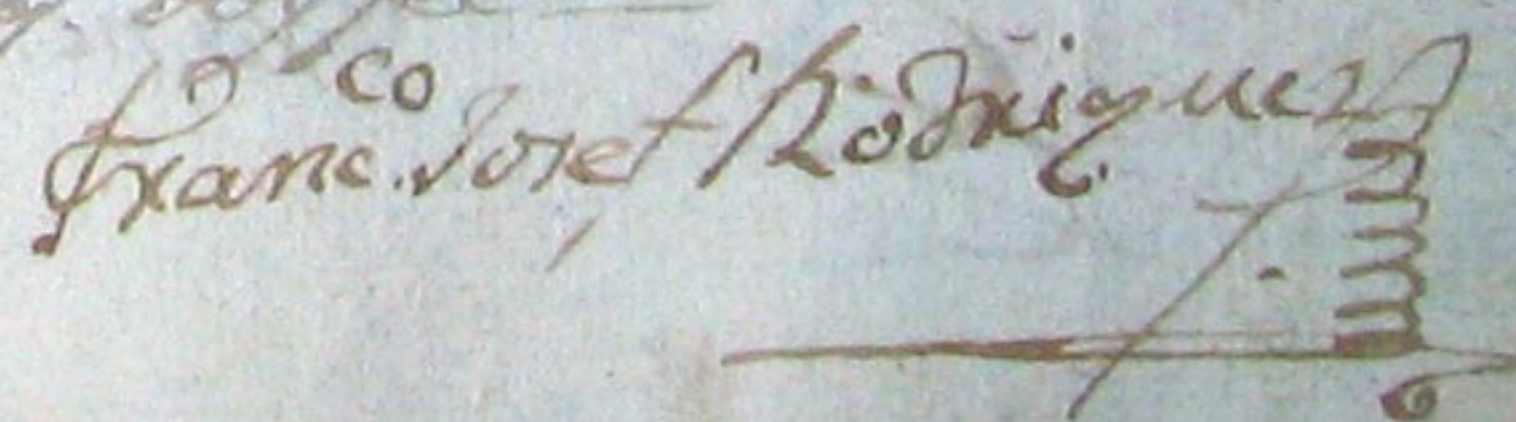 Franc.co Josef Rodriguez